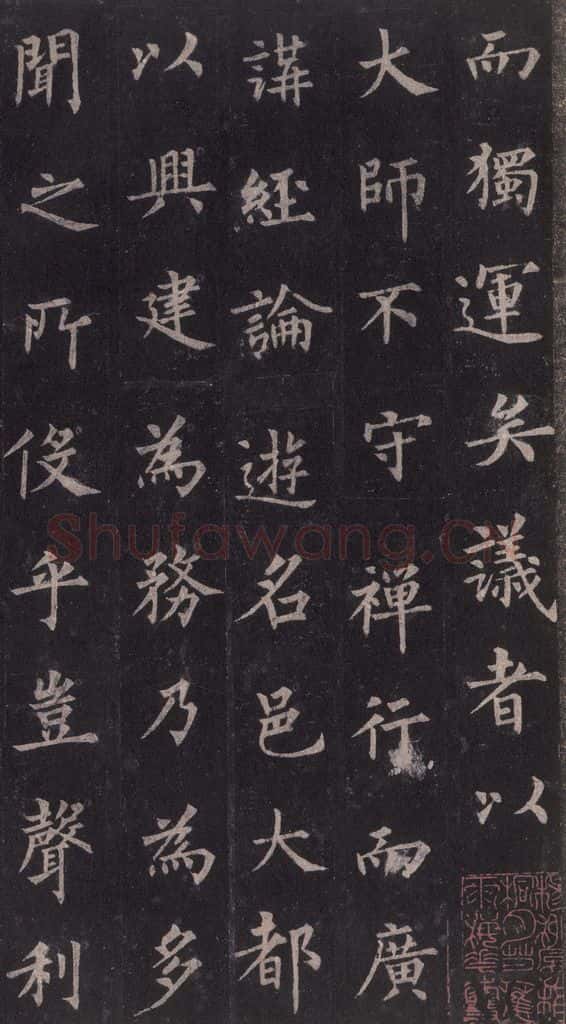 而獨運矣議者以
大師不守禪行而廣
講經論遊名邑大都
以興建為務乃為多
聞之所役乎豈聲利
Shufawang.cn